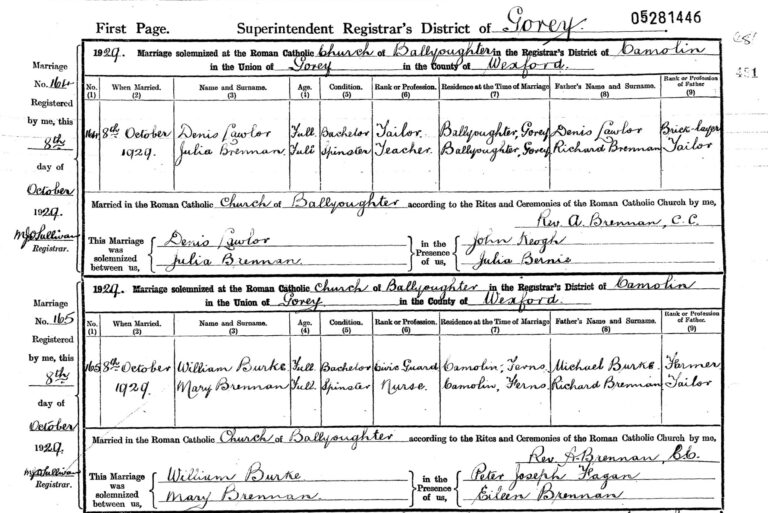 First Page. Superintendent Registrar's District of Gorey. 05281446
1929. Marriage solemnized at the Roman Catholic Church of Ballyoughter in the Registrar's District of Camolin
in the Union of Gorey in the County of Wexford.
Marriage
No. 164
Registered
by me, this
8th
day of
October
1929.
MJO'Sullivan
Registrar.
No. (1) When Married. (2) Name and Surname. (3) Age. (4) Condition. (5) Rank or Profession. (6) Residence at the Time of Marriage (7) Father's Name and Surname. (8) Rank or Profession of Father (9)
164 8th October Denis Lawlor Full Bachelor Tailor. Ballyoughter, Gorey Denis Lawlor Brick-layer
1929. Julia Brennan. Full Spinster Teacher. Ballyoughter, Gorey Richard Brennan Tailor
Married in the Roman Catholic Church of Ballyoughter according to the Rites and Ceremonies of the Roman Catholic Church by me,
Rev. A. Brennan, C.C.
This Marriage was solemnized between us, Denis Lawlor in the Presence of us, John Keogh
Julia Brennan. Julia Bernie
451
1929. Marriage solemnized at the Roman Catholic Church of Ballyoughter in the Registrar's District of Camolin
in the Union of Gorey in the County of Wexford.
Marriage
No. 165
Registered
by me, this
8th
day of
October
1929.
MJO'Sullivan
Registrar.
No. (1) When Married. (2) Name and Surname. (3) Age. (4) Condition. (5) Rank or Profession. (6) Residence at the Time of Marriage (7) Father's Name and Surname. (8) Rank or Profession of Father (9)
165 8th October William Burke. Full Bachelor Civic Guard Camolin, Ferns Michael Burke. Farmer
1929. Mary Brennan Full Spinster Nurse. Camolin, Ferns Richard Brennan Tailor
Married in the Roman Catholic Church of Ballyoughter according to the Rites and Ceremonies of the Roman Catholic Church by me,
Rev. A. Brennan, C.C.
This Marriage was solemnized between us, William Burke in the Presence of us, Peter Joseph Fagan
Mary Brennan. Eileen Brennan